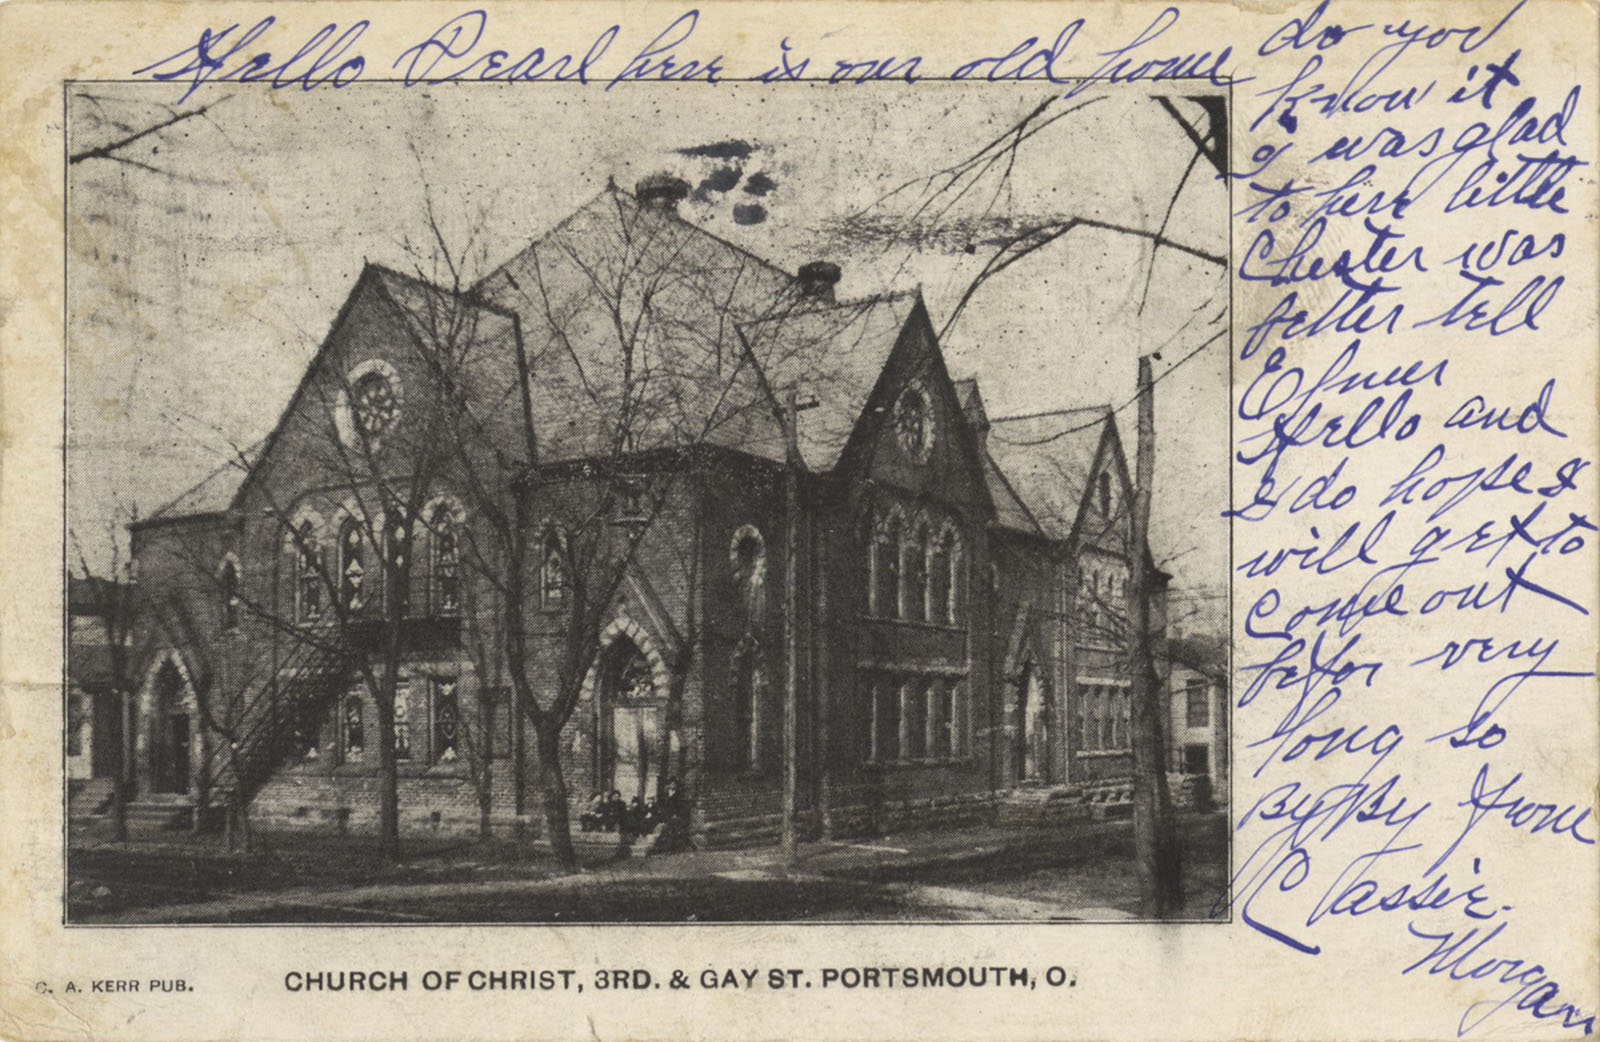 Hello Pearl here is our old home
do you
know it
I was glad
to here little
Chester was
better tell
Elmer
Hello and
I do hope I
will get to
Come out
befor very
long so
By By from
Cassie.
Morgan
C. A. KERR PUB.
CHURCH OF CHRIST, 3RD. & GAY ST. PORTSMOUTH, O.